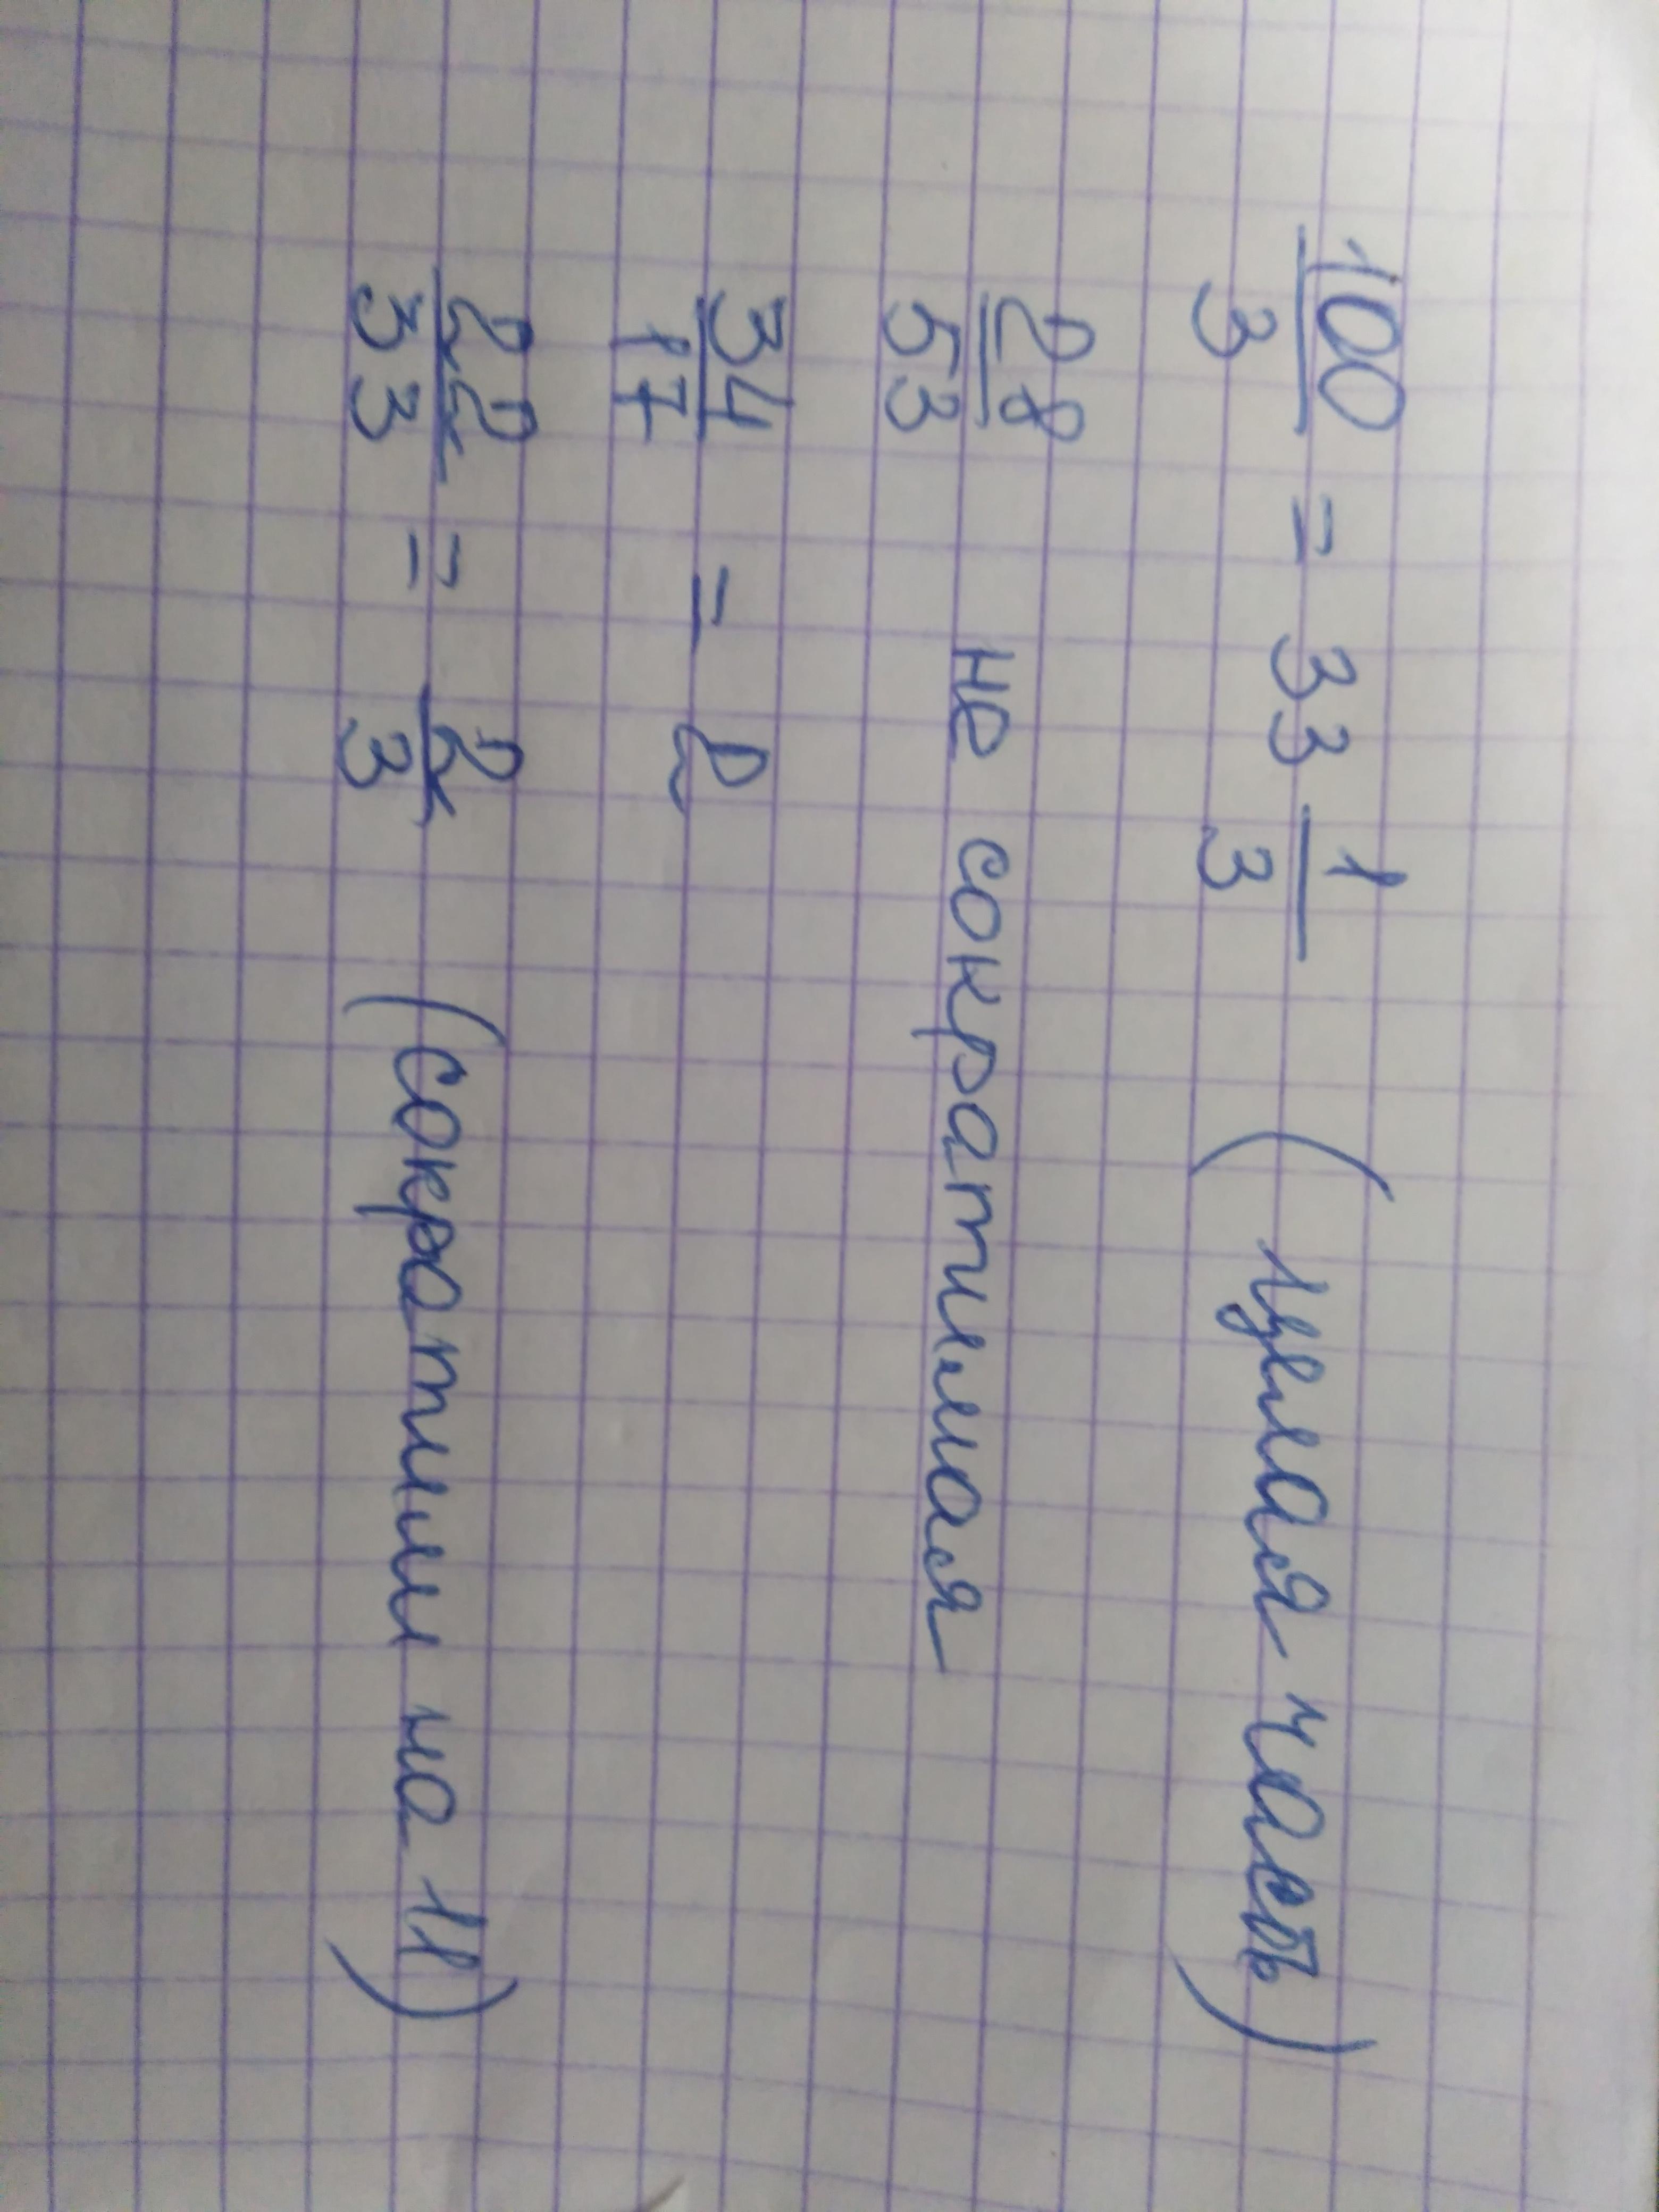 100/3 = 33 1/3 (целая часть)
28/53 не сократимая
34/17 = 2
22/33 = 2/3 (сократили на 11)